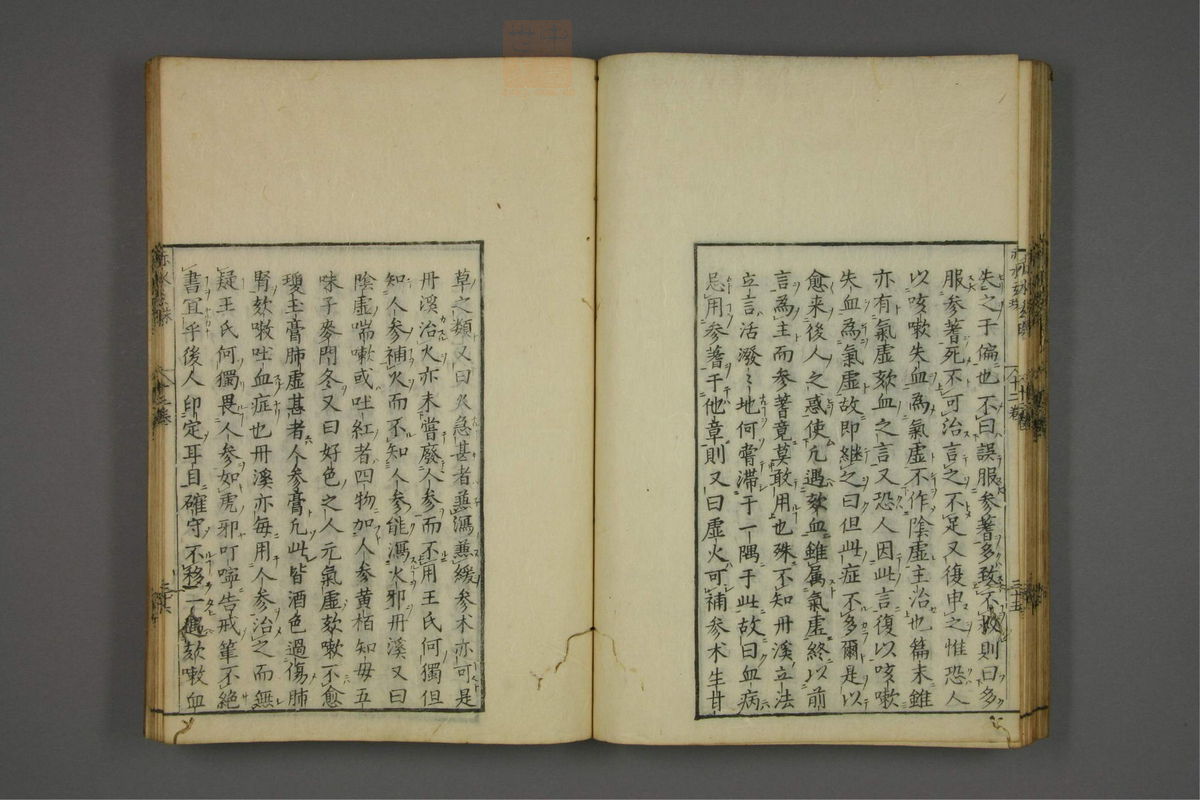 失之于偏也不曰誤服參蓍多致不救則曰多
服參蓍死不可治言之不足又復申之惟恐人
以咳嗽失血為氣虛不作陰虛主治也篇末雖
亦有氣虛欬血之言又恐人因此言復以咳嗽
失血為氣虛故即継之曰但此症不多爾是以
愈来後人之惑使凢遇欬血雖属氣虛終以前
言為主而參蓍竟莫敢用也殊不知丹溪立法
立言活潑〻地何嘗滞于一隅于此故曰血病
忌用參蓍于他章則又曰虛火可補參术生甘
草之類又曰火急甚者兼瀉兼緩參术亦可是
丹溪治火亦未嘗廢人參而不用王氏何獨但
知人參補火而不知人參能瀉火邪丹溪又曰
陰虛喘嗽或吐紅者四物加人參黄栢知毋五
味子麥門冬又曰好色之人元氣虛欬嗽不愈
瓊玉膏肺虛甚者人參膏凢此皆酒色過傷肺
腎欬嗽吐血症也丹溪亦毎用人參治之而無
疑王氏何獨畏人參如虎邪叮嚀告戒筆不絕
書宜乎後人印定耳目確守不移一遇欬嗽血